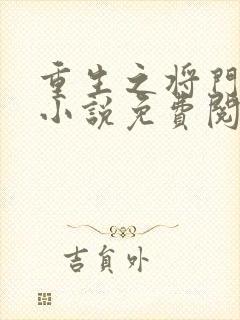 重生之将門
小説免費閱
吉貟外